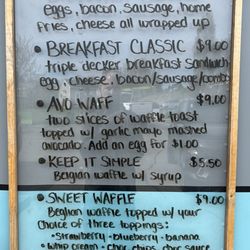 eggs, bacon, sausage, home
fries, cheese all wrapped up
• BREAKFAST CLASSIC $9.00
triple decker breakfast sandwich
egg, cheese, bacon/sausage/combo
• AVO WAFF $9.00
two slices of waffle toast
topped w/ garlic mayo mashed
avocado. Add an egg for $1.00
• KEEP IT SIMPLE $5.50
Belgian waffle w/ syrup
• SWEET WAFFLE $9.00
Belgian waffle topped w/ your
choice of three toppings:
• strawberry • blueberry • banana
• whip cream • choc chips choc sauce